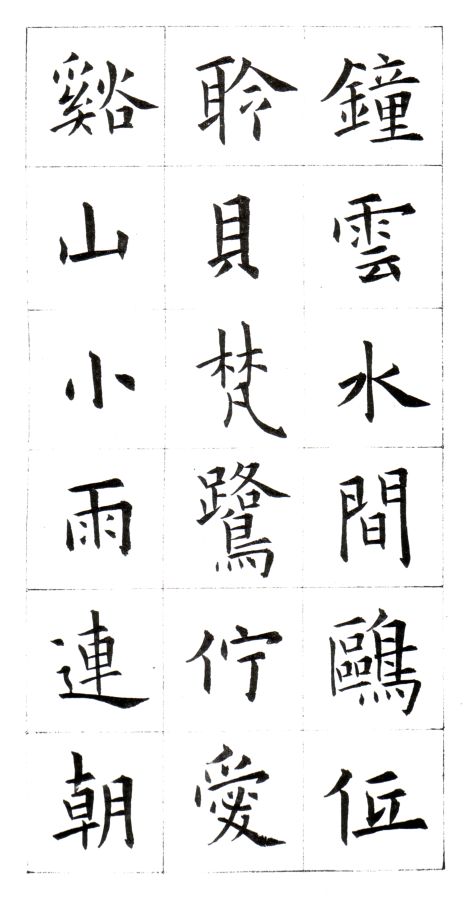 鐘雲水間鷗
聆貝梵鷺佇愛
谿山小雨連朝